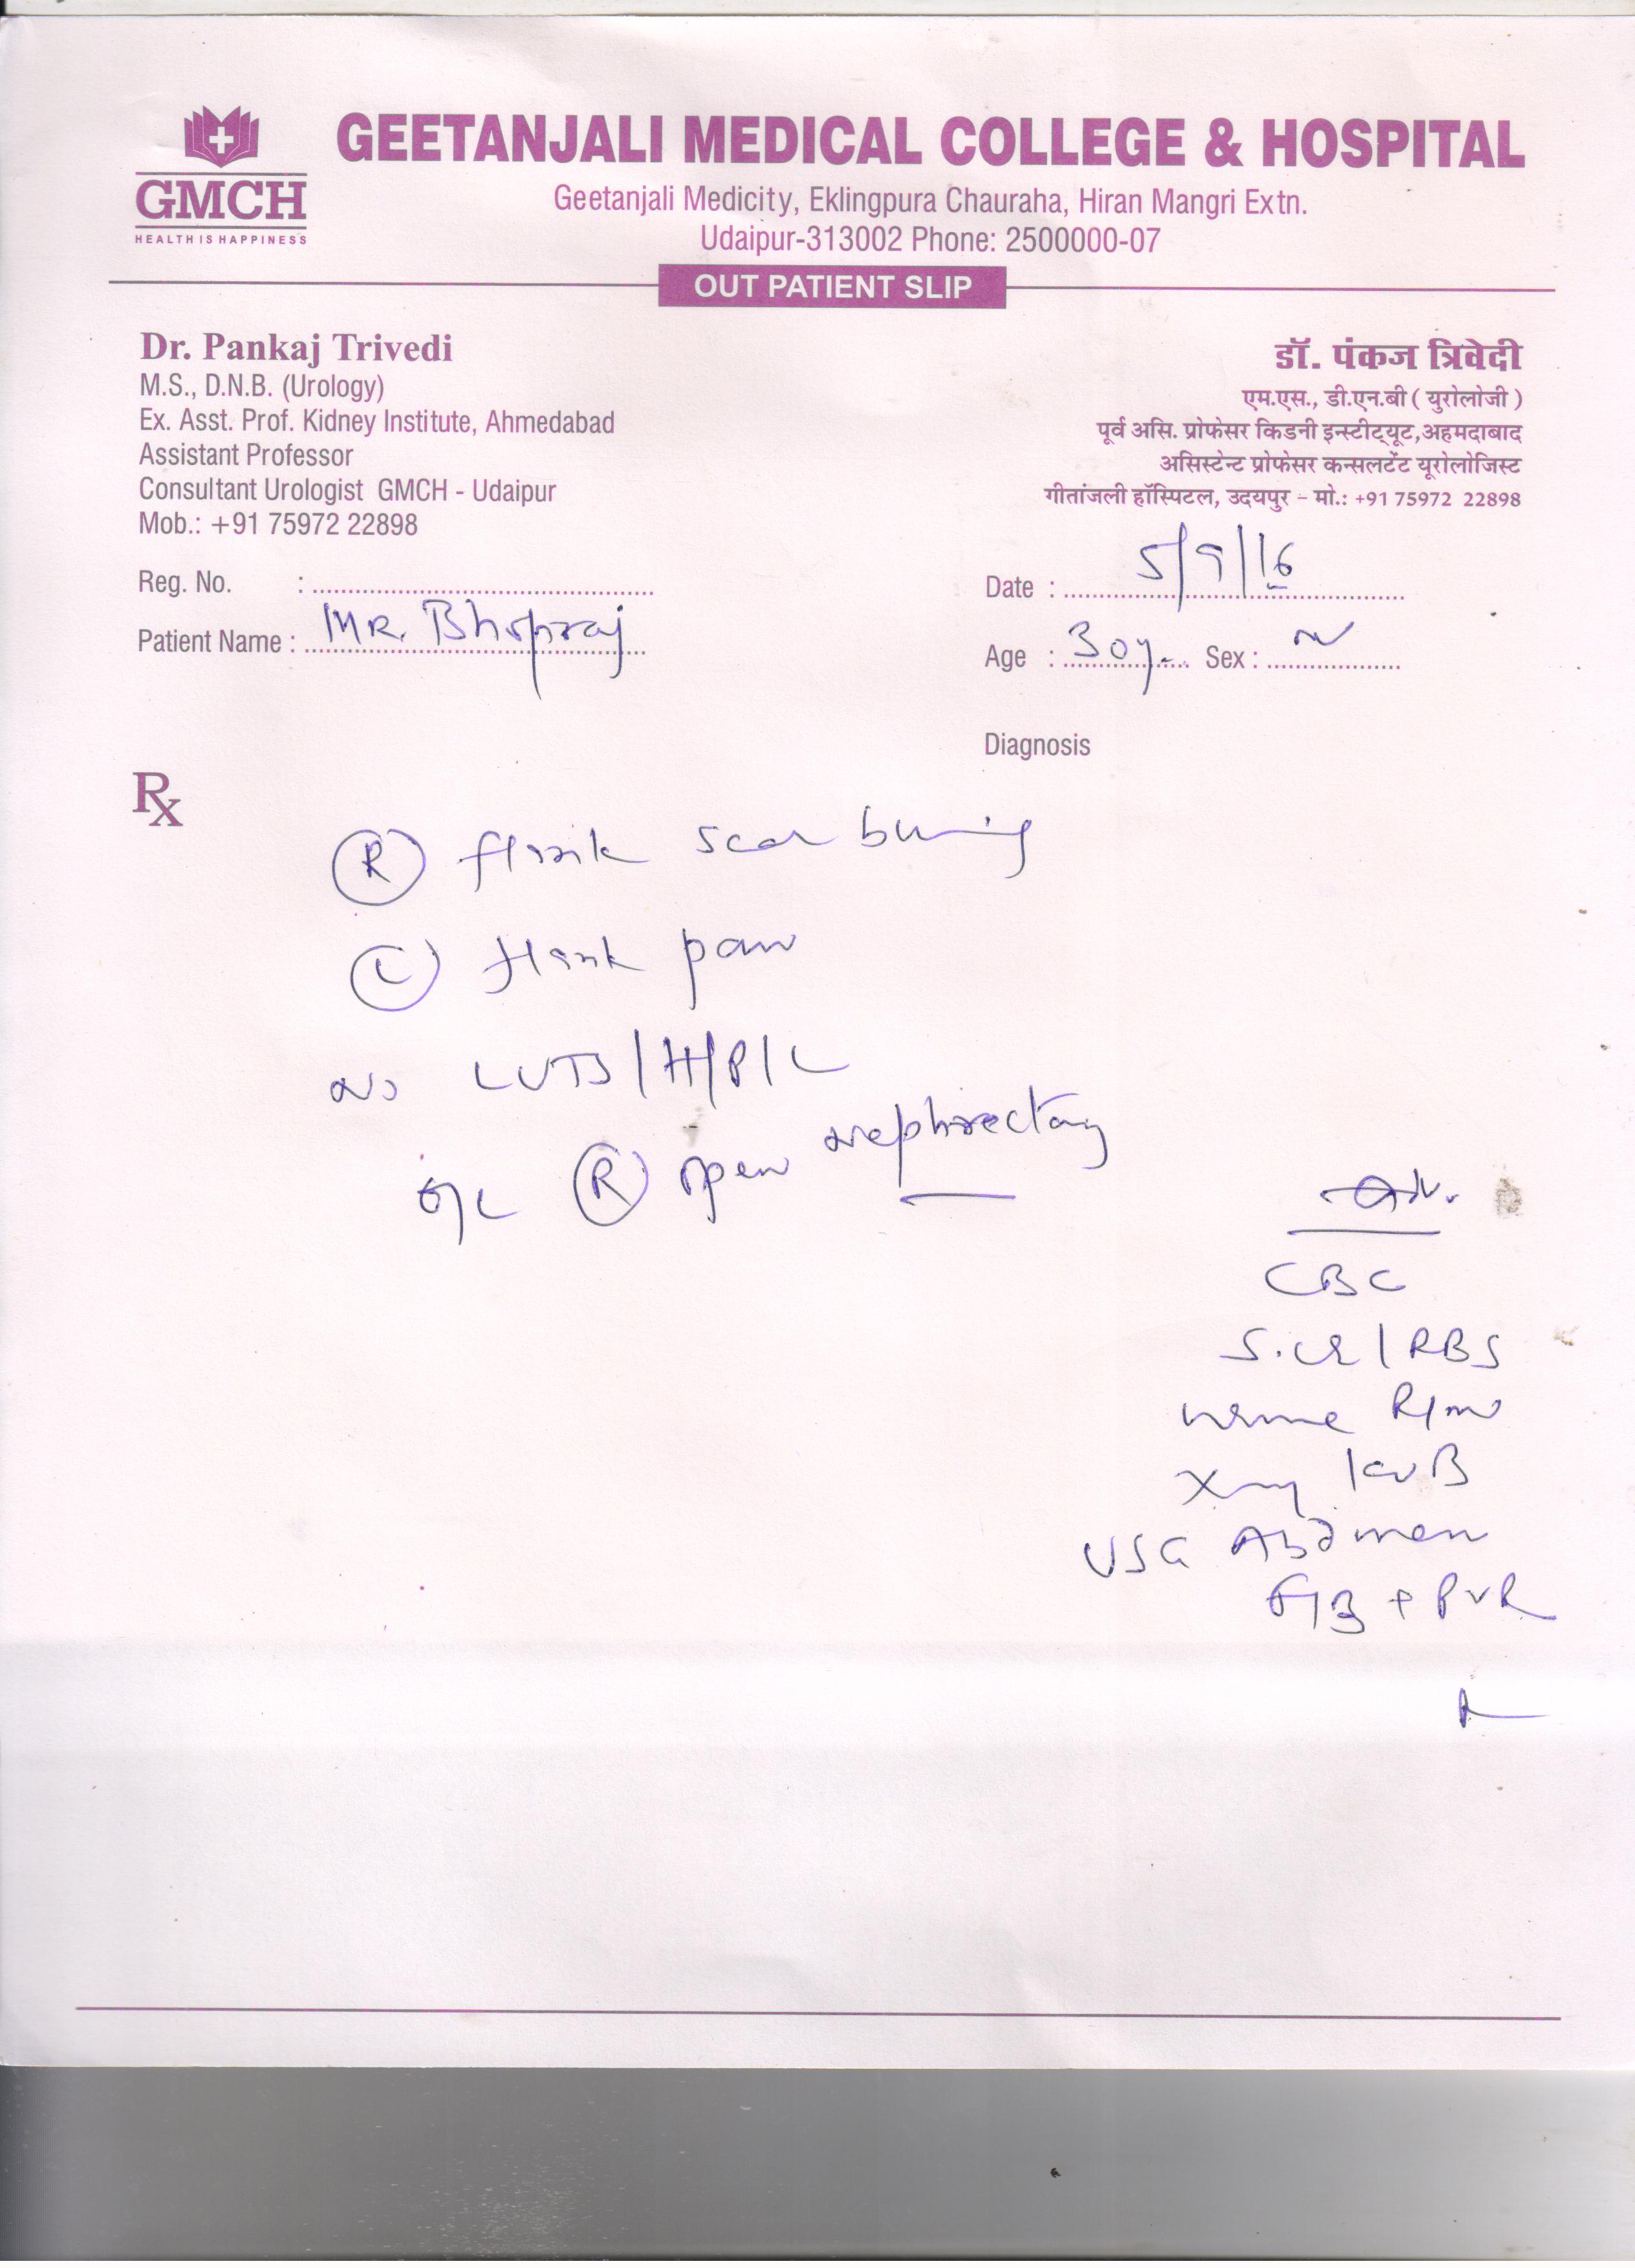 GMCH
HEALTH IS HAPPINESS
GEETANJALI MEDICAL COLLEGE & HOSPITAL
Geetanjali Medicity, Eklingpura Chauraha, Hiran Mangri Extn.
Udaipur-313002 Phone: 2500000-07
OUT PATIENT SLIP
Dr. Pankaj Trivedi
M.S., D.N.B. (Urology)
Ex. Asst. Prof. Kidney Institute, Ahmedabad
Assistant Professor
Consultant Urologist GMCH - Udaipur
Mob.: +91 75972 22898
डॉ. पंकज त्रिवेदी
एम.एस., डी.एन.बी ( युरोलोजी )
पूर्व असि. प्रोफेसर किडनी इन्स्टीट्यूट,अहमदाबाद
असिस्टेन्ट प्रोफेसर कन्सलटेंट यूरोलोजिस्ट
गीतांजली हॉस्पिटल, उदयपुर - मो.: +91 75972 22898
Reg. No. :
Date : 5/9/16
Patient Name : MR. Bhopraj
Age : 30y. Sex : M
Diagnosis
Rx
(R) flank scar burning
(L) flank pain
No LUTS/H/P/L
(R) open nephrectomy
Adv.
CBC
S.Cr / RBS
urine R/m
Xray KUB
USG Abdomen
+ PVR